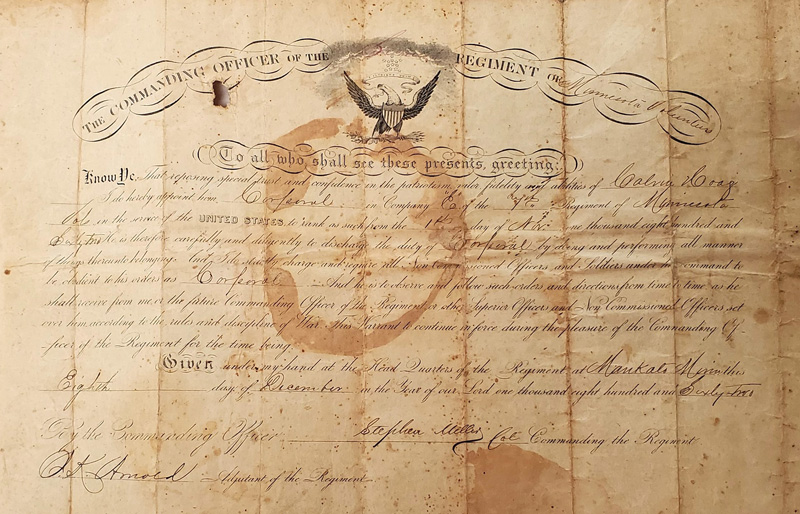 THE COMMANDING OFFICER OF THE REGIMENT OF Minnesota Volunteers
To all who shall see these presents, greeting:
Know Ye, That reposing special trust and confidence in the patriotism, valor, fidelity and abilities of Calvin Hoag
I do hereby appoint him Corporal in Company E of the 7th Regiment of Minnesota
Vols in the service of the UNITED STATES to rank as such from the 1st day of one thousand eight hundred and
Sixty two He is therefore carefully and diligently to discharge the duty of Corporal by doing and performing all manner
of things thereunto belonging. And I do strictly charge and require all Non Commissioned Officers and Soldiers under his command to
be obedient to his orders as Corporal And he is to observe and follow such orders and directions from time to time as he
shall receive from me or the future Commanding Officer of the Regiment or other Superior Officers and Non Commissioned Officers set
over him, according to the rules and discipline of War. This Warrant to continue in force during the pleasure of the Commanding Of-
ficer of the Regiment for the time being.
Given under my hand at the Head Quarters of the Regiment at Mankato Minn this
Eighth day of December in the Year of our Lord one thousand eight hundred and Sixty two
By the Commanding Officer Stephen Miller Col Commanding the Regiment
Arnold Adjutant of the Regiment